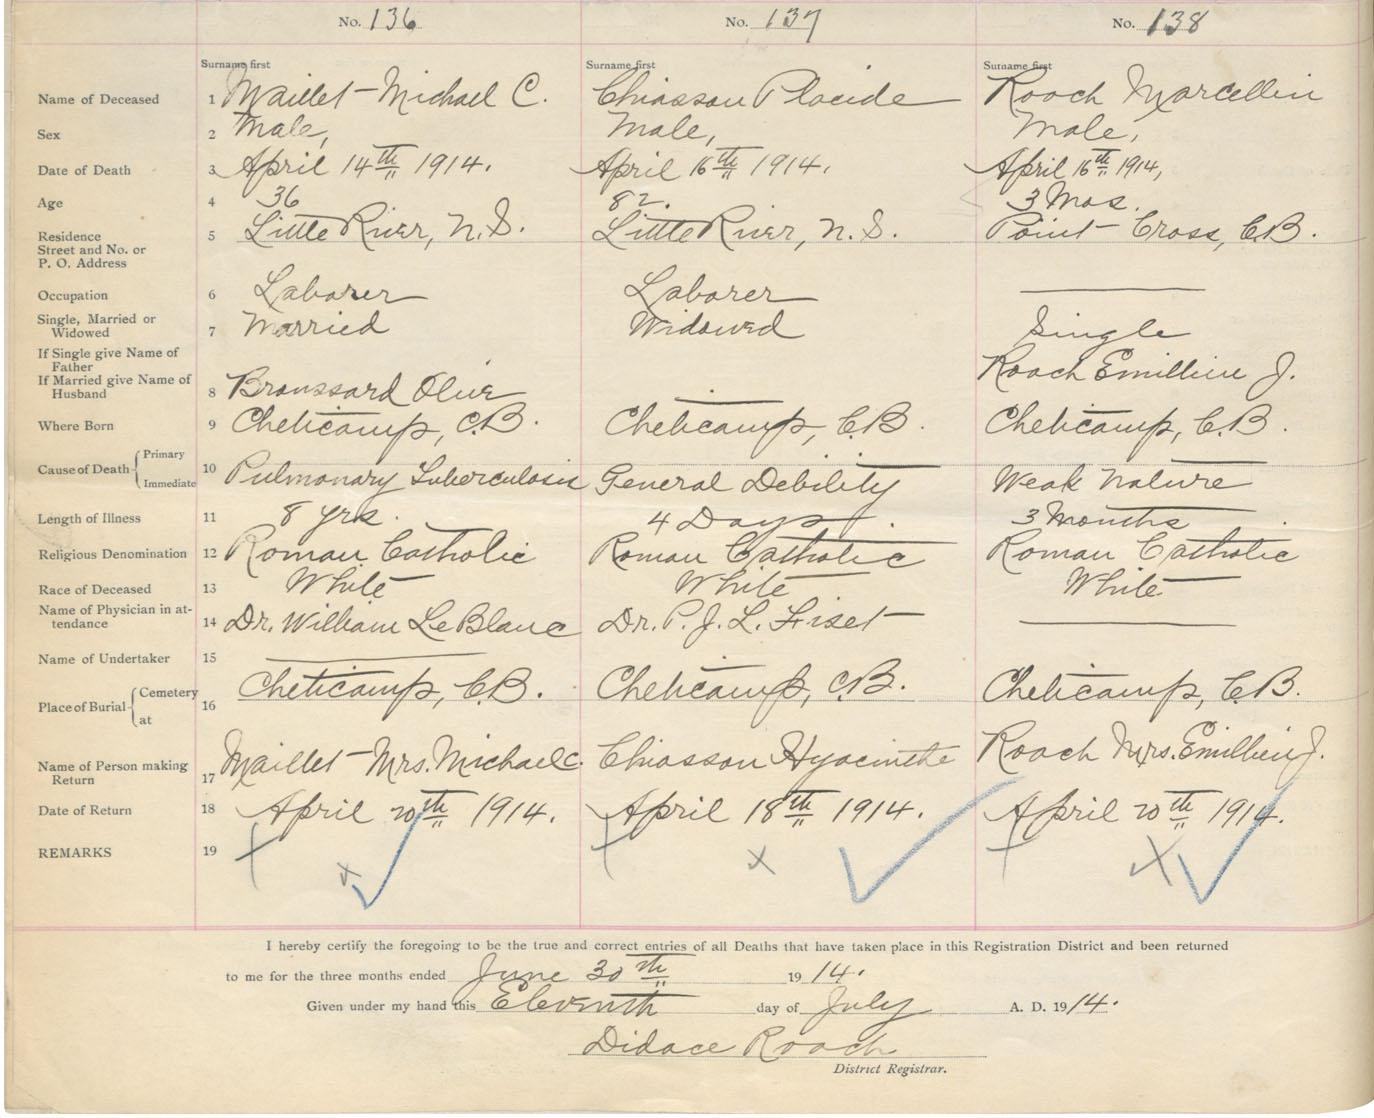 No. 136 No. 137 No. 138
Surname first Surname first Surname first
Name of Deceased 1 Maillet Michael C. Chiasson Placide Roach Marcellin
Sex 2 Male, Male, Male,
Date of Death 3 April 14th 1914. April 16th 1914. April 16th 1914,
Age 4 36 82. 3 Mos.
Residence 5 Little River, N.S. Little River, N.S. Point Cross, C.B.
Street and No. or
P. O. Address
Occupation 6 Laborer Laborer
Single, Married or
Widowed 7 Married Widowed Single
If Single give Name of
Father Roach Emillien J.
If Married give Name of
Husband 8 Broussard Olive
Where Born 9 Cheticamp, C.B. Cheticamp, C.B. Cheticamp, C.B.
Cause of Death Primary
Immediate 10 Pulmonary Tuberculosis General Debility Weak Nature
Length of Illness 11 8 yrs. 4 Days. 3 Months
Religious Denomination 12 Roman Catholic Roman Catholic Roman Catholic
Race of Deceased 13 White White White
Name of Physician in at-
tendance 14 Dr. William LeBlanc Dr. P. J. L. Fiset
Name of Undertaker 15
Place of Burial Cemetery
at 16 Cheticamp, C.B. Cheticamp, C.B. Cheticamp, C.B.
Name of Person making
Return 17 Maillet Mrs. Michael C. Chiasson Hyacinthe Roach Mrs. Emillien J.
Date of Return 18 April 20th 1914. April 18th 1914. April 20th 1914.
REMARKS 19
I hereby certify the foregoing to be the true and correct entries of all Deaths that have taken place in this Registration District and been returned
to me for the three months ended June 30th 1914.
Given under my hand this Eleventh day of July A. D. 1914.
Didace Roach
District Registrar.